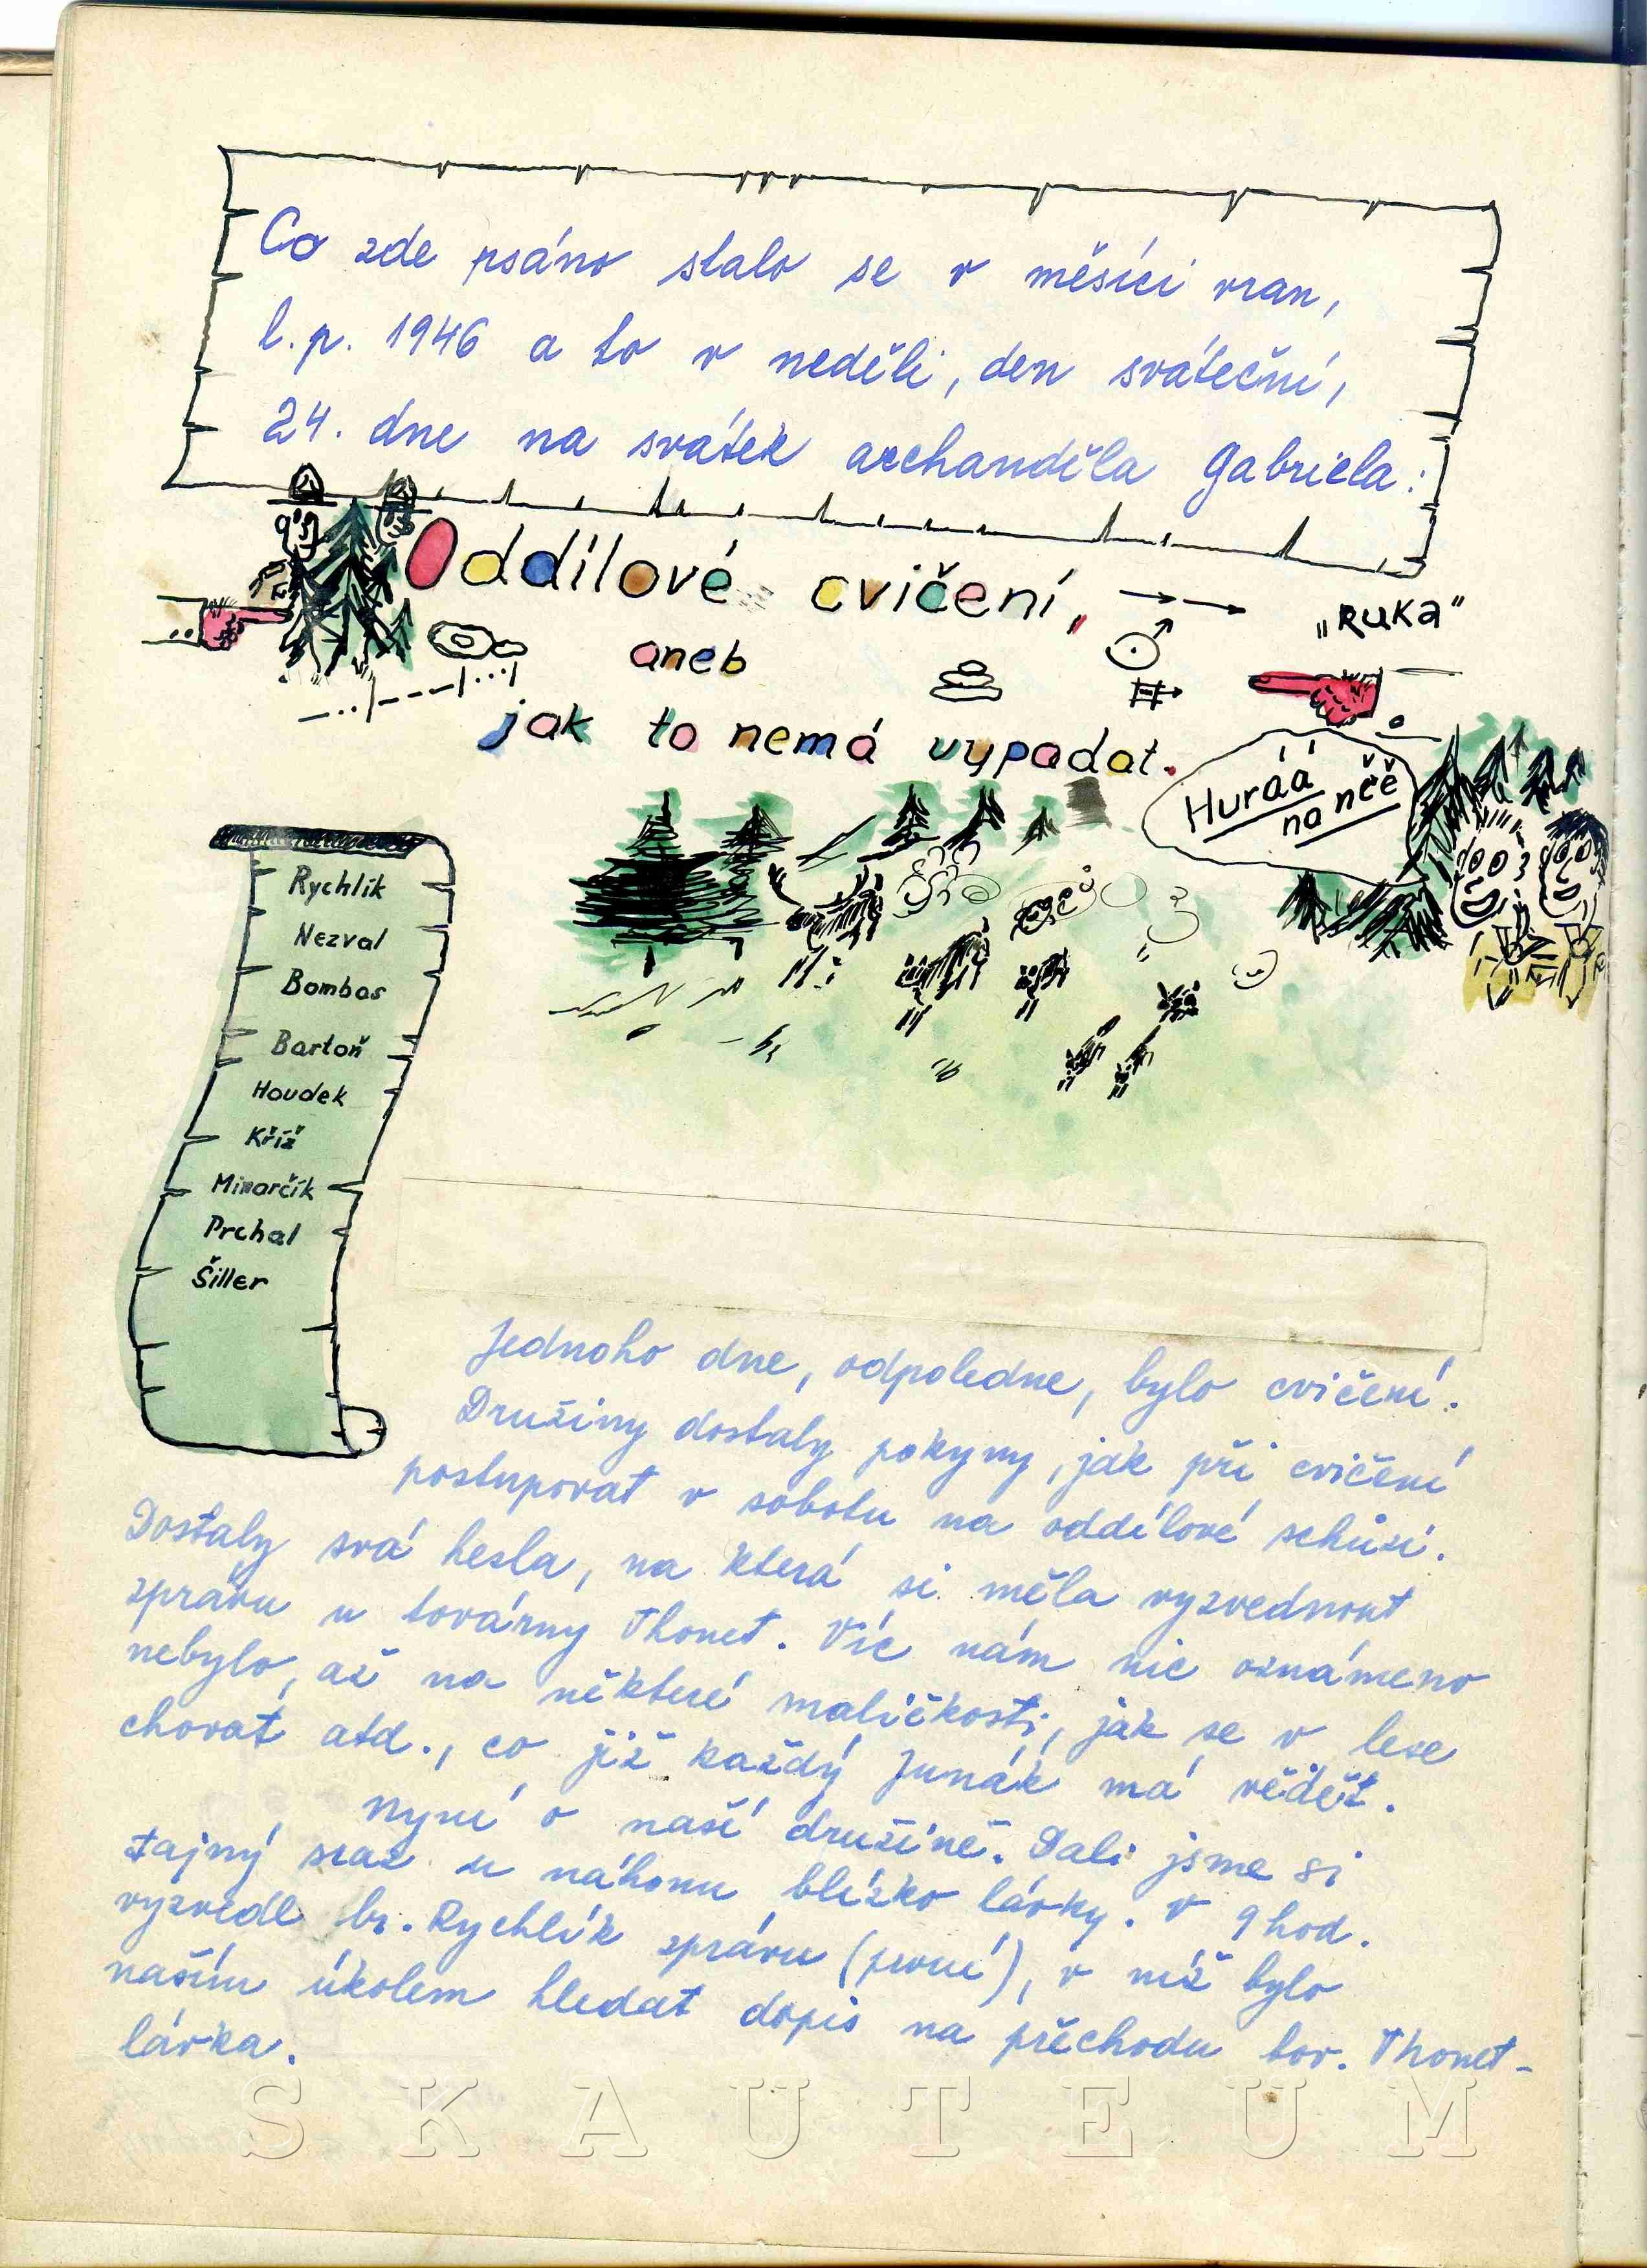 Co zde psáno stalo se v měsíci vran,
l.p. 1946 a to v neděli, den sváteční,
24. dne na svátek archanděla Gabriela:
Oddílové cvičení,
„RUKA“
aneb
jak to nemá vypadat.
Huráá
na ně
Rychlík
Nezval
Bombas
Bartoň
Houdek
Kříž
Minarčík
Prchal
Šiller
Jednoho dne, odpoledne, bylo cvičení.
Družiny dostaly pokyny, jak při cvičení
postupovat v sobotu na oddílové schůzi.
Dostaly svá hesla, na která si měla vyzvednout
zprávu u továrny Thonet. Víc nám nic oznámeno
nebylo, až na některé maličkosti, jak se v lese
chovat atd., co již každý Junák má vědět.
Nyní o naší družině. Dali jsme si
tajný sraz u náhonu blízko lávky. V 9 hod.
vyzvedl br. Rychlík zprávu (první), v níž bylo
naším úkolem hledat dopis na přechodu tov. Thonet-
lávka.
SKAUTEUM